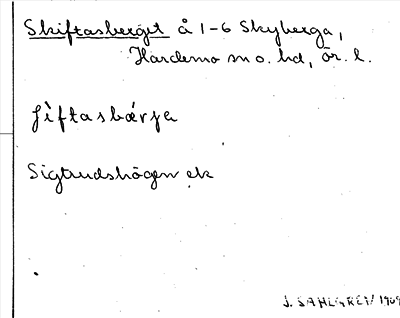 Skiftasberget å 1-6 Skyberga,
Hardemo sn o. hd, Ör. l.
ʃìftasbæ̀rja
Sigtrudshögen ek
J. SAHLGREN 1909